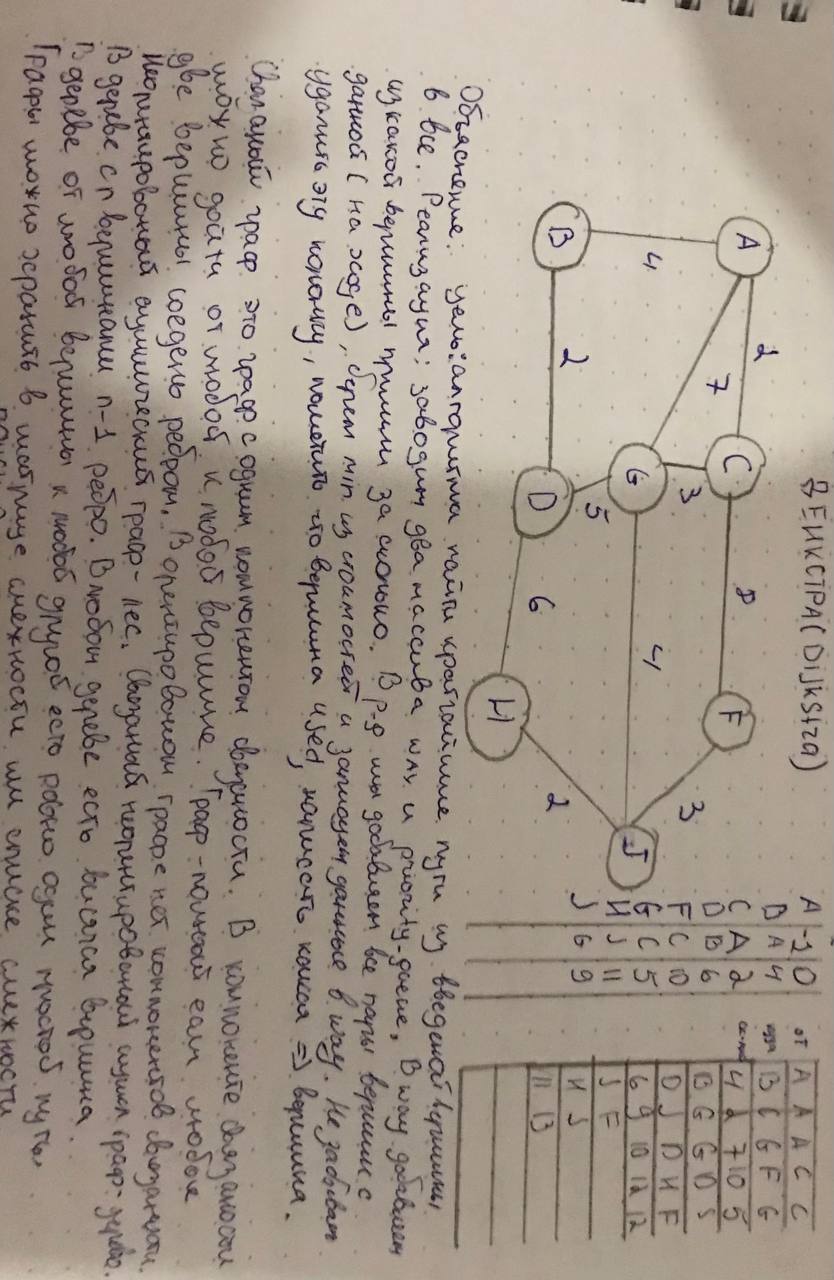 ДЕЙКСТРА (Dijkstra)
A
2
C
8
F
4
7
3
3
G
4
J
B
2
D
5
6
H
2
A -1 0
B A 4
C A 2
D B 6
F C 10
G C 5
H J 11
J G 9
от A A A C C
куда B C G F G
4 2 7 10 5
B G G D J
D J D H F
6 9 10 12 12
J F
H J
11 13
Объяснение: цель: алгоритма найти кратчайшие пути из введеной вершины
в все. Реализация: заводим два массива way и priority-queue, В way добавляем
из какой вершины пришли за сколько. В p-q мы добавляем все пары вершин с
данной (на ходе), берем min из стоимостей и записуем данные в way. Не забывать
удалить эту колонку, пометить что вершина used, написать какая => вершина.
Связаный граф это граф с одним компонентом связности. В компоненте связаности
можно дойти от любой к любой вершине. Граф-полный если любые
две вершины соедены ребром. В орентированом графе нет компонентов связаности.
Неоринтированый ациклический граф- лес. Связаный неорентированый ацикл. граф- дерево.
В дереве с n вершинами n-1 ребро. В любом дереве есть висячая вершина.
В дереве от любой вершины к любой другой есть ровно один простой путь.
Графы можно хранить в матрице смежности или списке смежности